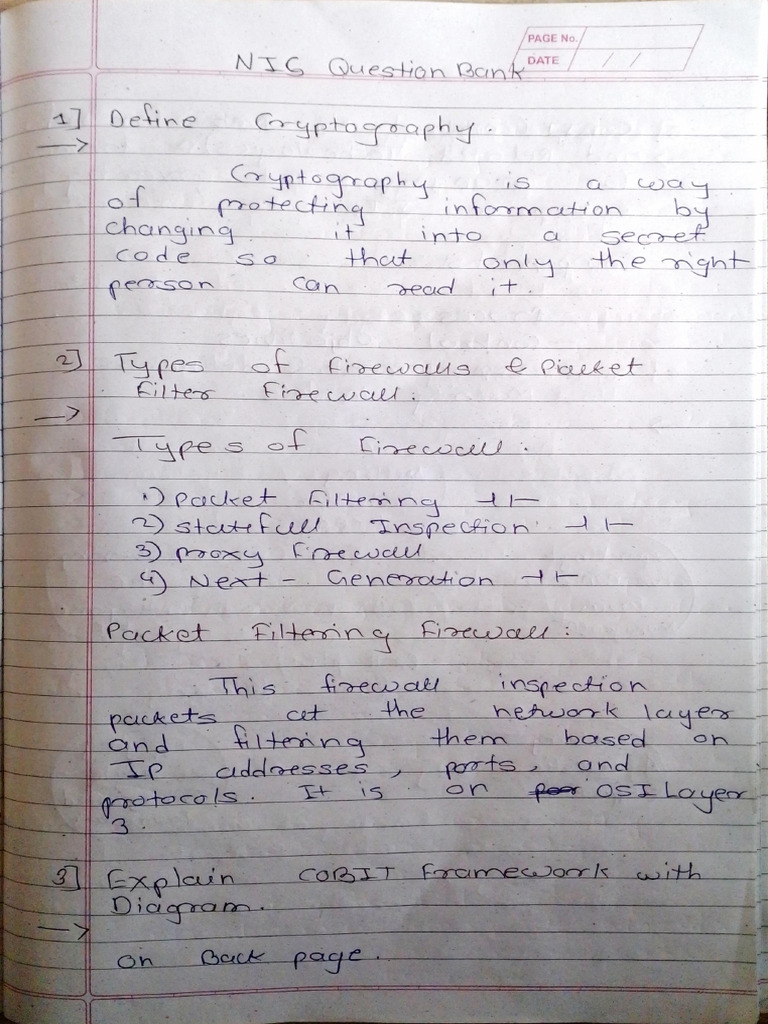 PAGE No.
DATE / /
NIS Question Bank
1] Define Cryptography.
→
Cryptography is a way
of protecting information by
changing it into a secret
code so that only the right
person can read it.
2] Types of Firewalls & Packet
Filter Firewall.
→
Types of Firewall:
1) Packet Filtering -11-
2) statefull Inspection -11-
3) proxy Firewall
4) Next - Generation -11-
Packet Filtering Firewall:
This firewall inspection
packets at the network layer
and filtering them based on
IP addresses, ports, and
protocols. It is on OSI Layer
3.
3] Explain COBIT Framework with
Diagram.
→
on Back page.